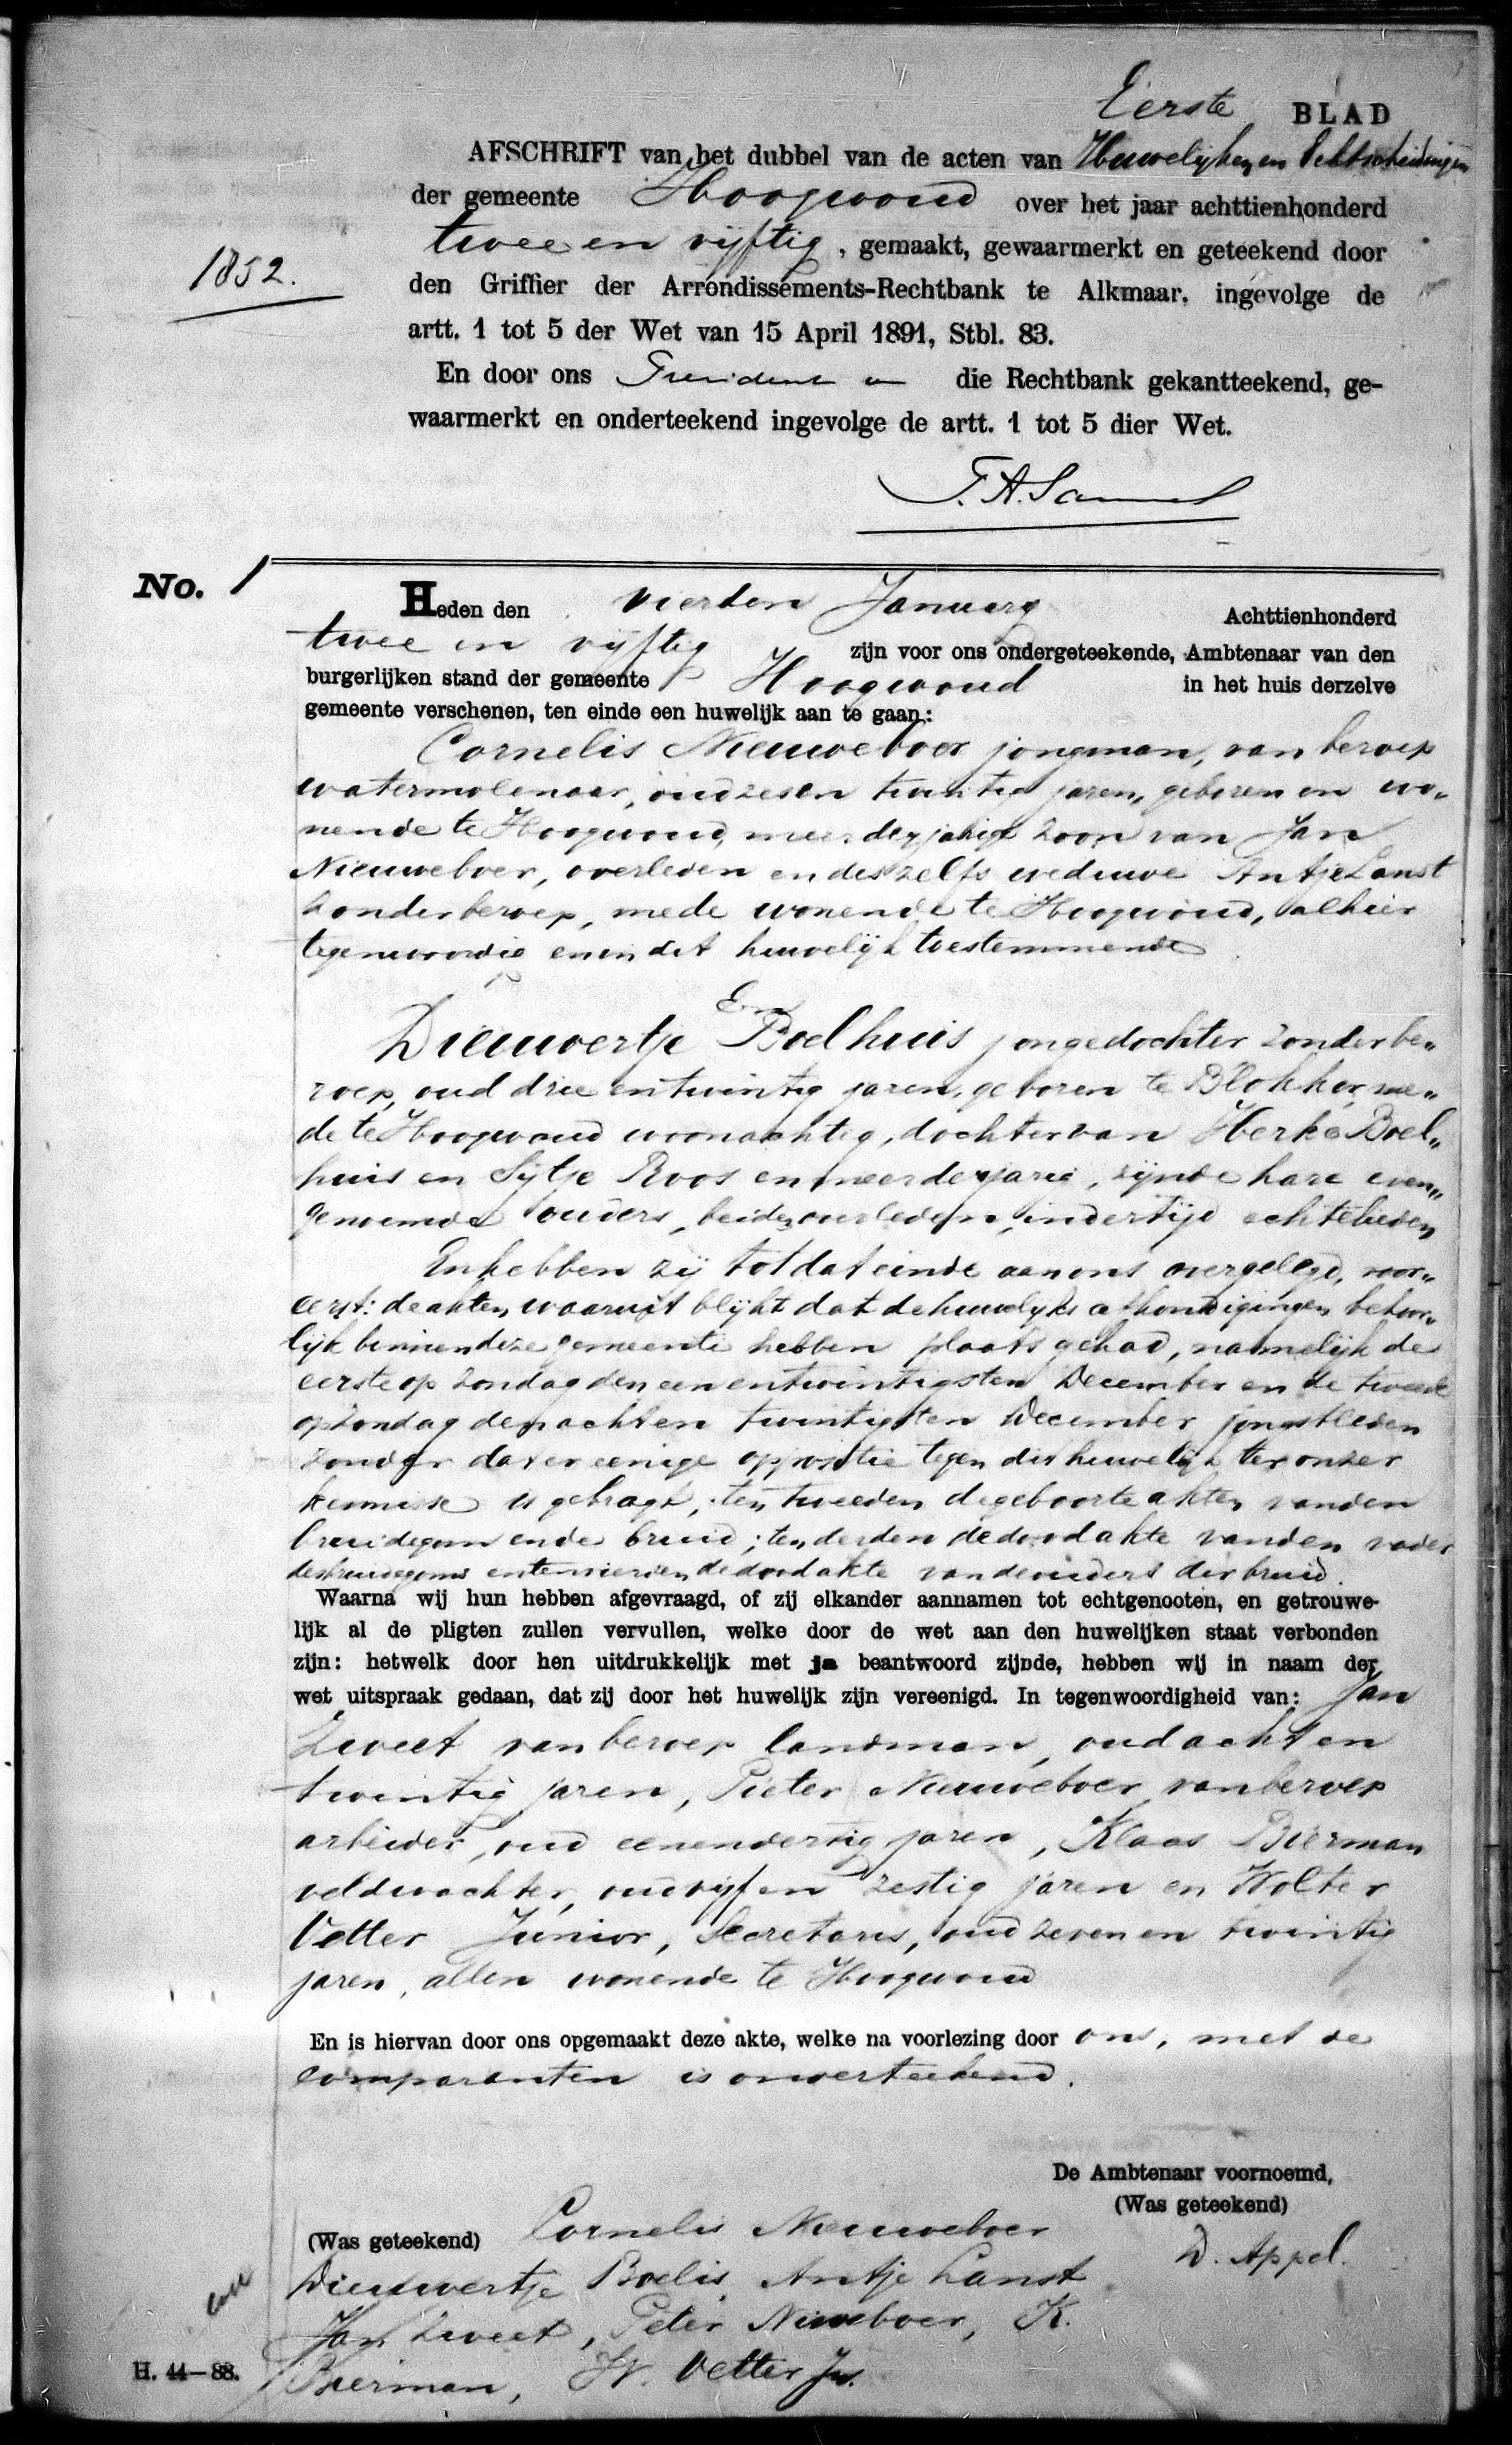 Eerste BLAD
AFSCHRIFT van het dubbel van de acten van Huwelijken en Echtscheidingen
der gemeente Hoogwoud over het jaar achttienhonderd
twee en vijftig, gemaakt, gewaarmerkt en geteekend door
1852.
den Griffier der Arrondissements-Rechtbank te Alkmaar, ingevolge de
artt. 1 tot 5 der Wet van 15 April 1891, Stbl. 83.
En door ons President en die Rechtbank gekantteekend, ge-
waarmerkt en onderteekend ingevolge de artt. 1 tot 5 dier Wet.
No. 1
Heden den vierden Januarij Achttienhonderd
twee en vijftig zijn voor ons ondergeteekende, Ambtenaar van den
burgerlijken stand der gemeente Hoogwoud in het huis derzelve
gemeente verschenen, ten einde een huwelijk aan te gaan:
Cornelis Nieuweboer jongman, van beroep
watermolenaar, oud zes en twintig jaren, geboren en wo„
nende te Hoogwoud, meerderjarige zoon van Jan
Nieuweboer, overleden en deszelfs weduwe Antje Lanst
zonder beroep, mede wonende te Hoogwoud, alhier
tegenwoordig en in dit huwelijk toestemmende
En
Dieuwertje Boelhuis jongedochter zonder be„
roep, oud drie en twintig jaren, geboren te Blokker, me„
de te Hoogwoud woonachtig, dochter van Herke Boel„
huis en Sijtje Roos en meerderjarig, zijnde hare even„
genoemde ouders, beide overleden, indertijd echtelieden
En hebben zij tot dat einde aan ons overgelegd, voor„
eerst: de akten, waaruit blijkt dat de huwelijks afkondigingen behoor„
lijk binnen deze gemeente hebben plaats gehad, namelijk de
eerste op zondag den een en twintigsten December en de tweede
op zondag den acht en twintigsten December jongstleden
zonder dat er eenige oppositie tegen dit huwelijk ter onzer
kennisse is gebragt; ten tweeden de geboorte akten van den
bruidegom en de bruid; ten derden de doodakte van den vader
des bruidegoms en ten vierden de doodakte van de ouders der bruid.
Waarna wij hun hebben afgevraagd, of zij elkander aannamen tot echtgenooten, en getrouwe-
lijk al de pligten zullen vervullen, welke door de wet aan den huwelijken staat verbonden
zijn: hetwelk door hen uitdrukkelijk met ja beantwoord zijnde, hebben wij in naam der
wet uitspraak gedaan, dat zij door het huwelijk zijn vereenigd. In tegenwoordigheid van: Jan
Zweet van beroep landman, oud acht en
twintig jaren, Pieter Nieuweboer van beroep
arbeider, oud eenendertig jaren, Klaas Bierman
veldwachter, oud vijf en zestig jaren en Wolter
Vetter Junior, Secretaris, oud zeven en twintig
jaren, allen wonende te Hoogwoud
En is hiervan door ons opgemaakt deze akte, welke na voorlezing door ons, met de
comparanten is onderteekend.
De Ambtenaar voornoemd,
(Was geteekend)
D. Appel.
(Was geteekend) Cornelis Nieuweboer
Dieuwertje Boelis, Antje Lanst
Jan Zweet, Peter Niuweboer, K.
Bierman, W. Vetter Jr.
H. 44—88.